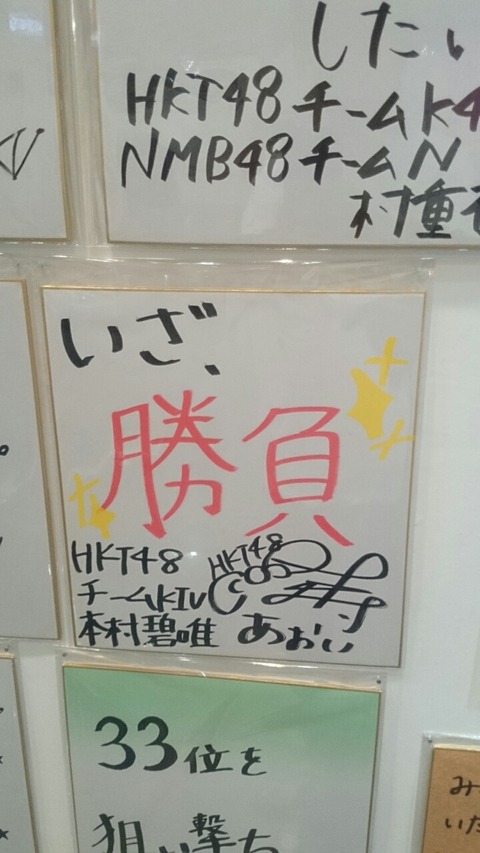 したい
HKT48チームK4
NMB48チームN
村重
いざ、
勝負
HKT48
チームKⅣ
本村碧唯
HKT48
あおい
33位を
狙い撃ち
み
いた